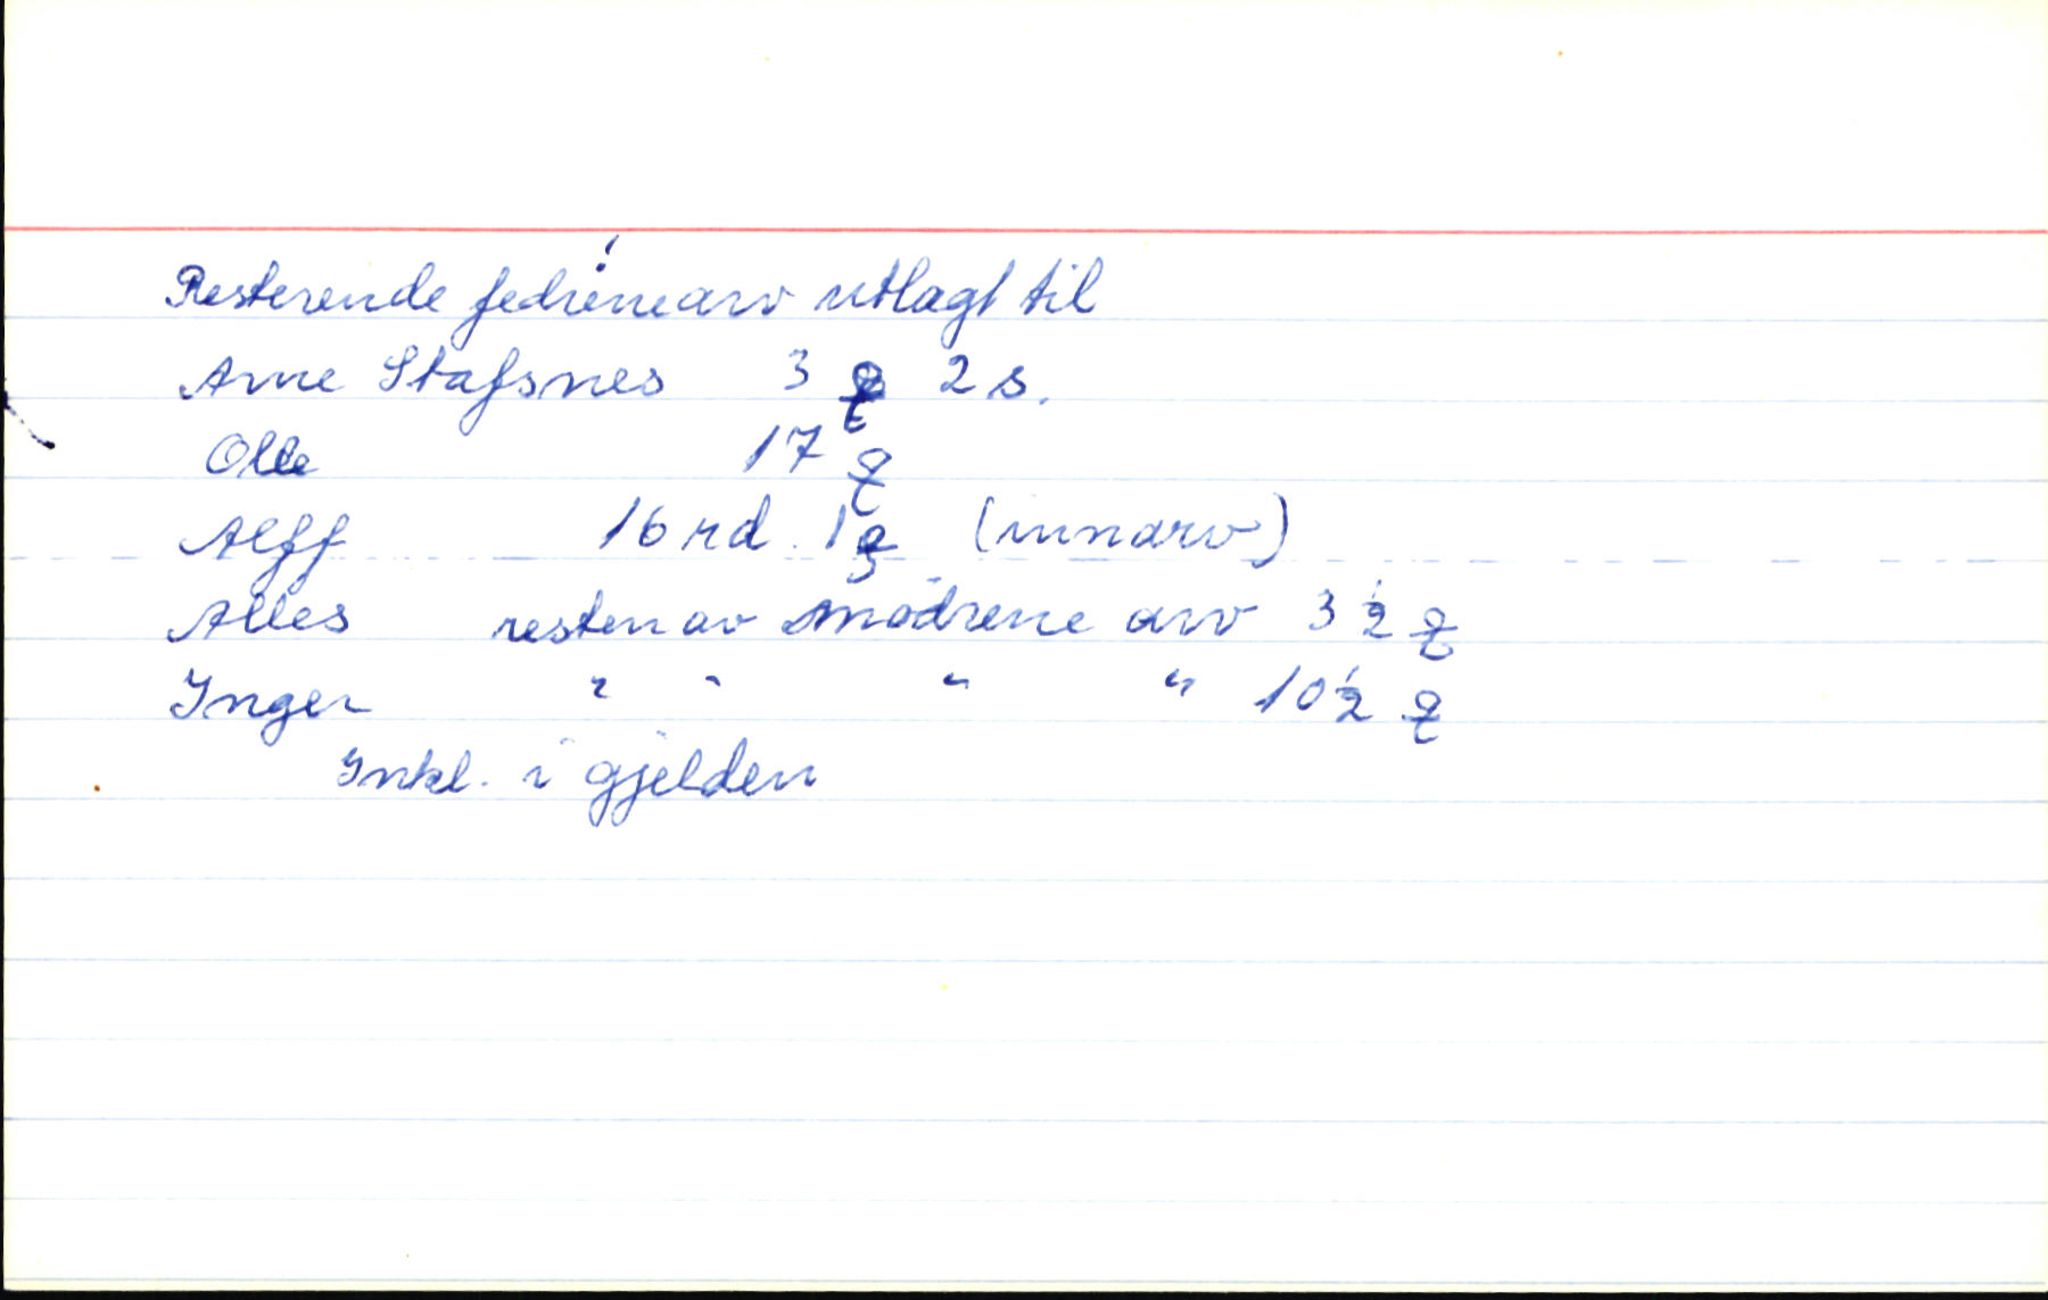 Resterende fedrenearv utlagt til
Arne Stafsnes 3 ƍ 2 s.
Olle 17 ƍ
Alff 16 rd. 1 ƍ (innarv)
Alles resten av mødrene arv 3 ½ ƍ
Inger " " " " 10 ½ ƍ
Inkl. i gjelden